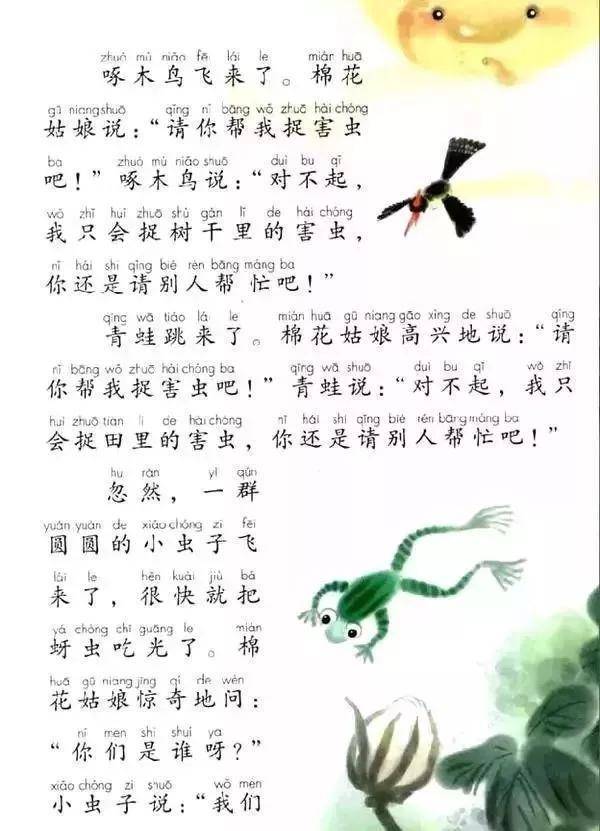 zhuó mù niǎo fēi lái le mián huā
啄木鸟飞来了。棉花
gū niang shuō qǐng nǐ bāng wǒ zhuō hài chóng
姑娘说：“请你帮我捉害虫
ba zhuó mù niǎo shuō duì bu qǐ
吧！”啄木鸟说：“对不起，
wǒ zhǐ huì zhuō shù gàn lǐ de hài chóng
我只会捉树干里的害虫，
nǐ hái shi qǐng bié rén bāng máng ba
你还是请别人帮忙吧！”
qīng wā tiào lái le mián huā gū niang gāo xìng de shuō qǐng
青蛙跳来了。棉花姑娘高兴地说：“请
nǐ bāng wǒ zhuō hài chóng ba qīng wā shuō duì bu qǐ wǒ zhǐ
你帮我捉害虫吧！”青蛙说：“对不起，我只
huì zhuō tián li de hài chóng nǐ hái shi qǐng bié rén bāng máng ba
会捉田里的害虫，你还是请别人帮忙吧！”
hū rán yì qún
忽然，一群
yuán yuán de xiǎo chóng zi fēi
圆圆的小虫子飞
lái le hěn kuài jiù bǎ
来了，很快就把
yá chóng chī guāng le mián
蚜虫吃光了。棉
huā gū niang jīng qí de wèn
花姑娘惊奇地问：
nǐ men shì shuí ya
“你们是谁呀？”
xiǎo chóng zi shuō wǒ men
小虫子说：“我们